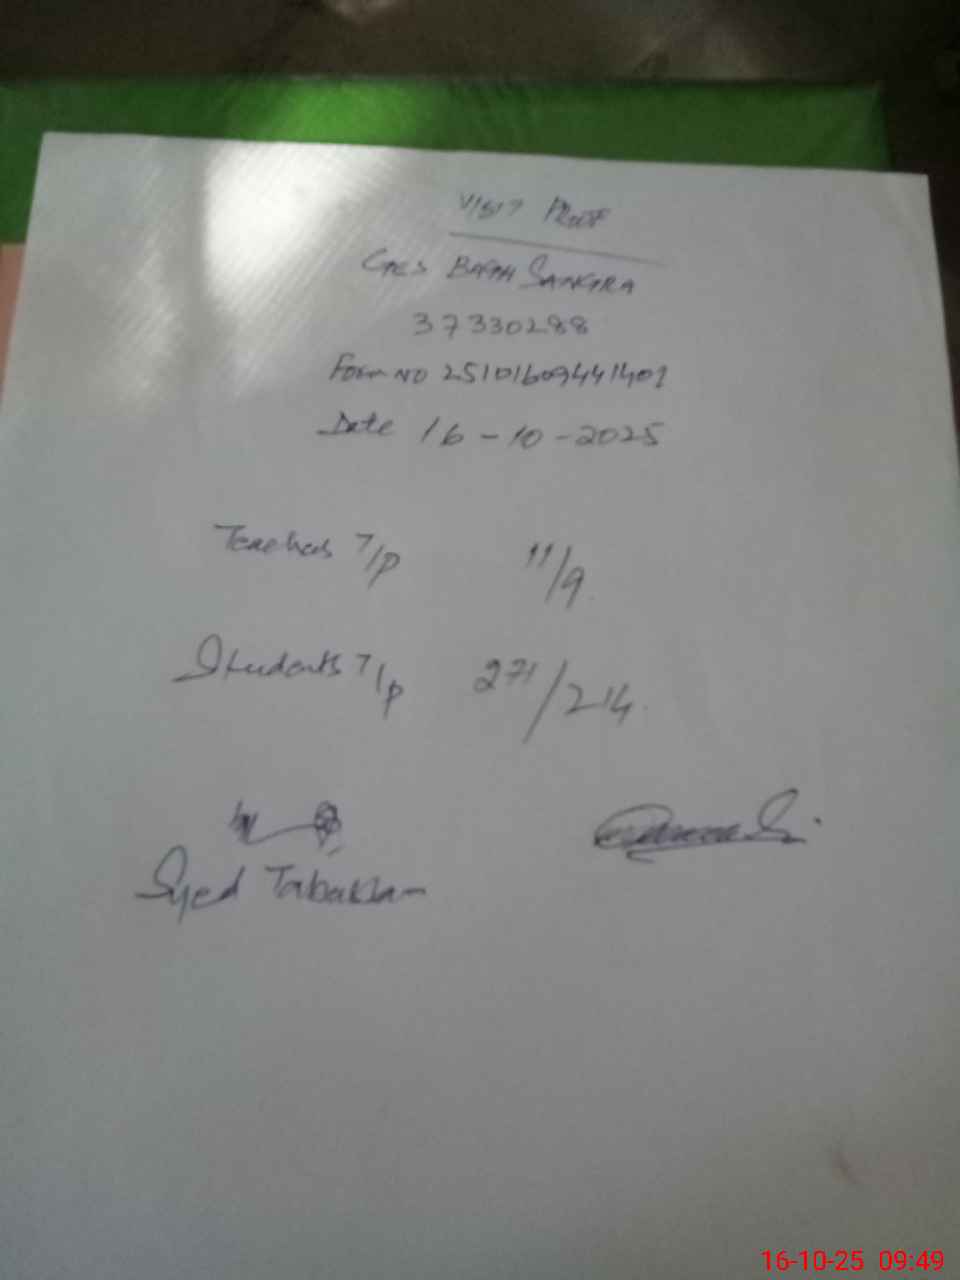 VISIT PROOF
GES BAGH SANGRA
37330288
Form NO 25101609441401
Date 16-10-2025
Teachers T/P 11/9
Students T/P 271/214
Syed Tabassam
16-10-25 09:49